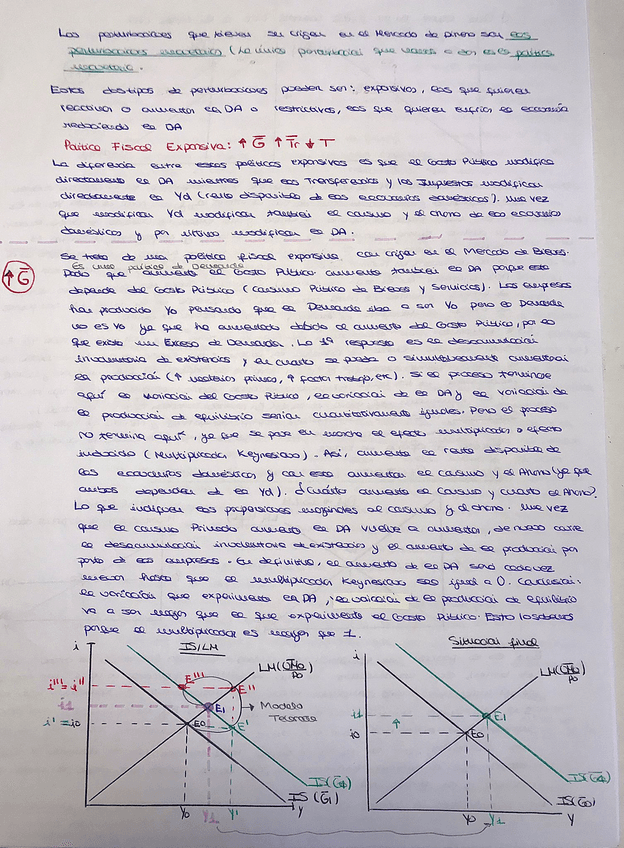 Las perturbaciones que tienen su origen en el Mercado de Dinero son las
perturbaciones monetarias (La única perturbación que vamos a ver es la política
monetaria.
Estos dos tipos de perturbaciones pueden ser: expansivas, las que quieren
reactivar o aumentar la DA o restrictivas, las que quieren enfriar la economía
reduciendo la DA
Política Fiscal Expansiva: ↑ G̅ ↑ T̅r ↓ T
La diferencia entre estas políticas expansivas es que el Gasto Público modifica
directamente la DA mientras que las Transferencias y los Impuestos modifican
directamente la Yd (renta disponible de las economías domésticas). Una vez
que modifican Yd modifican también el consumo y el ahorro de las economías
domésticas y por último modifican la DA.
Se trata de una política fiscal expansiva con origen en el Mercado de Bienes.
Es una política de Demanda
↑ G̅
Dado que aumenta el Gasto Público aumenta también la DA porque esta
depende del Gasto Público (consumo Público de Bienes y Servicios). Las empresas
han producido Yo pensando que la Demanda iba a ser Yo pero la Demanda
no es Yo ya que ha aumentado debido al aumento del Gasto Público, por lo
que existe un Exceso de Demanda. La 1ª respuesta es la desacumulación
involuntaria de existencias y en cuanto se pueda o simultáneamente aumentará
la producción (↑ materias primas, ↑ factor trabajo, etc). Si el proceso terminase
aquí la variación del Gasto Público, la variación de la DA y la variación de
la producción de equilibrio serían cuantitativamente iguales. Pero el proceso
no termina aquí, ya que se pone en marcha el efecto multiplicador o efecto
inducido (Multiplicador Keynesiano). Así, aumenta la renta disponible de
las economías domésticas y con esta aumentan el consumo y el Ahorro (ya que
ambos dependen de la Yd). ¿Cuánto aumenta el Consumo y cuanto el Ahorro?
Lo que indiquen las propensiones marginales al consumo y al ahorro. Una vez
que el consumo Privado aumenta la DA vuelve a aumentar, de nuevo ocurre
la desacumulación involuntaria de existencias y el aumento de la producción por
parte de las empresas. En definitiva, el aumento de la DA será cada vez
menor hasta que el multiplicador Keynesiano sea igual a 0. Conclusión:
la variación que experimenta la DA, y la variación de la producción de equilibrio
va a ser mayor que la que experimenta el Gasto Público. Esto lo sabemos
porque el multiplicador es mayor que 1.
IS/LM
i
LM(M̅o/Po)
i'''=i''
E'''
E''
i1
E1
Modelo
i'=i0
E0
E'
IS(G̅1)
IS(G̅1)
Y0
Y1
Y'
Y
Situación final
i
LM(M̅o/Po)
i1
E1
i0
E0
IS(G̅1)
IS(G̅0)
Y0
Y1
Y